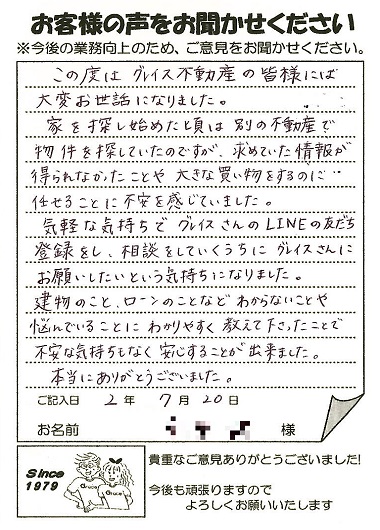 お客様の声をお聞かせください
※今後の業務向上のため、ご意見をお聞かせください。
この度は グレイス不動産の皆様には
大変お世話になりました。
家を探し始めた頃は 別の不動産で
物件を探していたのですが、求めていた情報が
得られなかったことや 大きな買い物をするのに
任せることに不安を感じていました。
気軽な気持ちで グレイスさんのLINEの友だち
登録をし、相談をしていくうちに グレイスさんに
お願いしたいという気持ちになりました。
建物のこと、ローンのことなど わからないことや
悩んでいることに わかりやすく 教えて下さったことで
不安な気持ちもなく 安心することが出来ました。
本当にありがとうございました。
ご記入日 2 年 7 月 20 日
お名前 様
Since
1979
Grace
Grace
貴重なご意見ありがとうございました!
今後も頑張りますので
よろしくお願いいたします